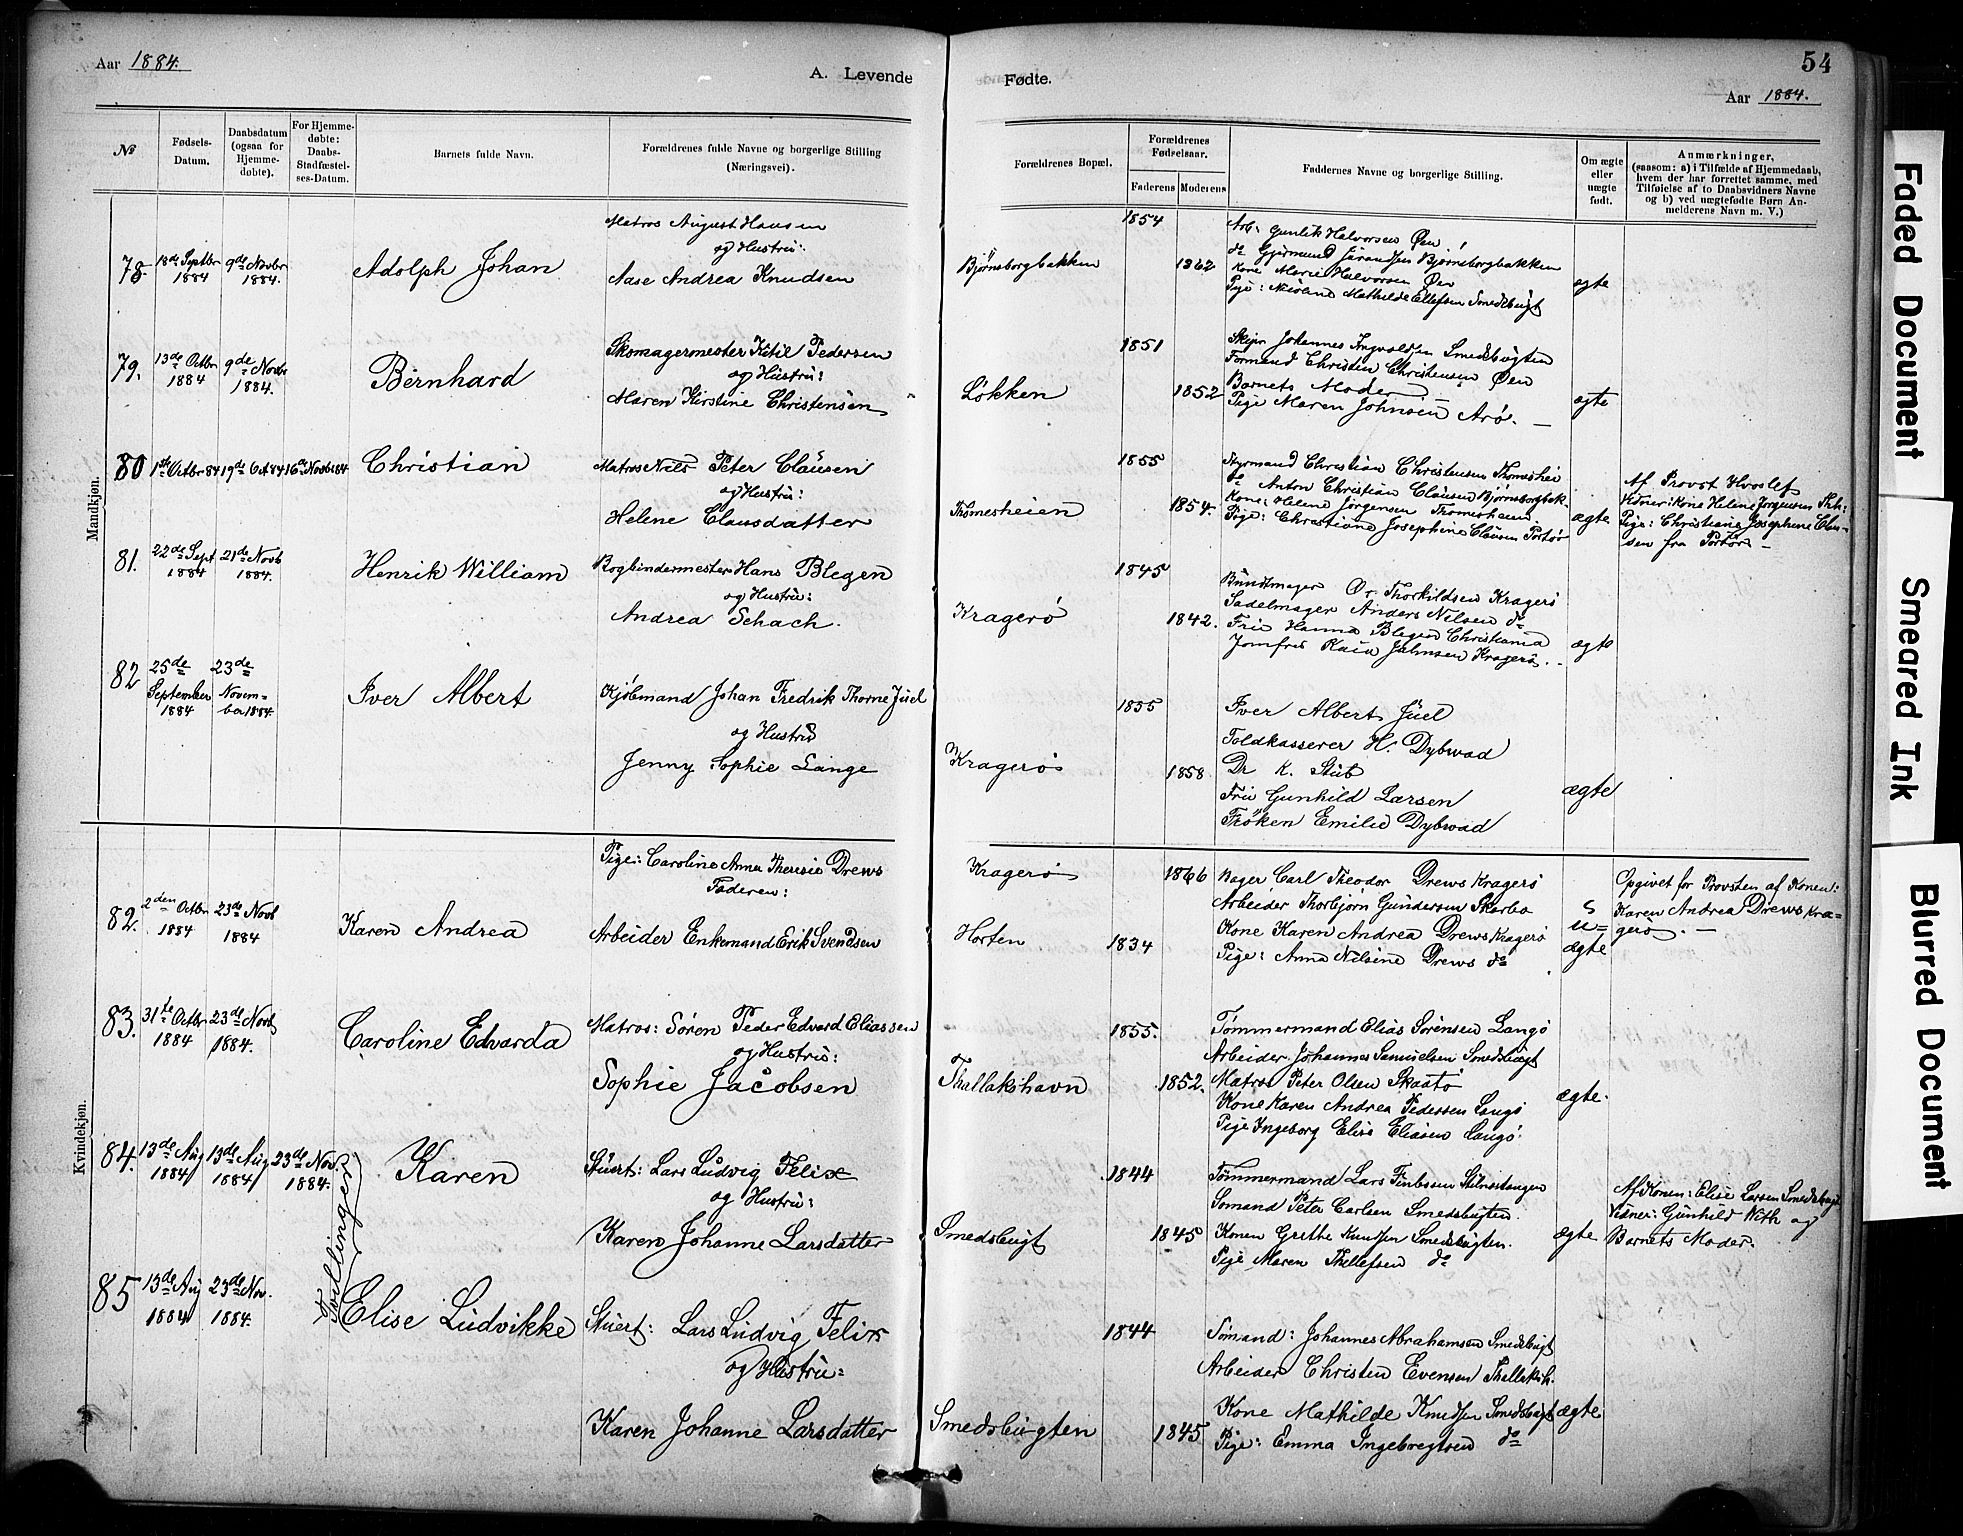 Aar 1884.
A. Levende
Fødte.
54
Aar 1884.
№
Fødsels-Datum.
Daabsdatum (ogsaa for Hjemmedøbte).
For Hjemmedøbte: Daabs-Stadfæstelses-Datum.
Barnets fulde Navn.
Forældrenes fulde Navne og borgerlige Stilling (Næringsvei).
Forældrenes Bopæl.
Forældrenes Fødselsaar.
Faderens
Moderens
Faddernes Navne og borgerlige Stilling.
Om ægte eller uægte født.
Anmærkninger,
(saasom: a) i Tilfælde af Hjemmedaab,
hvem der har forrettet samme, med
Tilføielse af to Daabsvidners Navne
og b) ved uægtefødte Børn An-
melderens Navn m. V.)
Mandkjøn.
78.
18de Septbr 1884
9de Novbr 1884.
Adolph Johan
Matros August Hansen
og Hustru:
Aase Andrea Knudsen
Bjørnsborgbakken
1854
1862
Arb: Gunlik Halvorsen Øen
do Gjermund Bjørnsborgbakken
Kone Marie Halvorsen Øen
Pige: Mathilde Ellefsen Smedsbugt
ægte
79.
13de Octbr 1884
9de Novbr 1884.
Bernhard
Skomagermester Kitil Pedersen
og Hustru:
Maren Kirstine Christensen
Løkken
1851
1852
Johannes Ingvoldsen Smedsbugten
Formand Christen Christensen Øen
Barnets Moder
Pige Maren Johnsen Arø.
ægte
80
1ste Octbr 84
19de Oct 84
16de Novbr 84
Christian
Matros Niels Peter Clausen
og Hustru:
Helene Clausdatter
Thomesheien
1855
1854.
Styrmand Christian Christensen Thomeshei
do Anton Christian Clausen Bjørnsborgbak.
Kone: Helene Jørgensen Thomesheien.
Pige: Christiane Josephine Clausen Portør
ægte
Af Provst Hvoslef
Vidner: Kone Helene Jørgensen Thh:
Pige: Christiane Josephine Clau-
sen fra Portør –
81.
22de Sept 1884
21de Novb 1884.
Henrik William
Bogbindermester Hans Blegen
og Hustru:
Andrea Schach.
Kragerø
1845
1842.
Bundtmager O. Thorkildsen Kragerø
Sadelmager Anders Nilsen do
Fru Hanna Blegen Christiania
Jomfru Kaia Jahnsen Kragerø.
ægte
82
25de September 1884
23de Novem-
ber 1884.
Iver Albert
Kjøbmand Johan Fredrik Thorne Juel
og Hustru
Jenny Sophie Lange
Kragerø
1855
1858
Iver Albert Juel
Toldkasserer H. Dybwad
Dr K. Stub
Fru Gunhild Larsen
Frøken Emilie Dybwad
ægte
Kvindekjøn.
82.
2den Octbr 1884
23de Novb 1884
Karen Andrea
Pige: Caroline Anna Theresie Drews
Faderen:
Arbeider Enkemand Erik Svendsen
Kragerø
Horten
1866
1834
Bager Carl Theodor Drews Kragerø
Arbeider Thorbjørn Gundersen Skarbo
Kone Karen Andrea Drews Kragerø
Pige: Anna Nilsine Drews do
u-
ægte
Opgivet for Provsten af Konen:
Karen Andrea Drews Kra-
gerø. –
83.
31te Octbr 1884
23de Novb 1884.
Caroline Edvarda
Matros: Søren Peder Edvard Eliassen
og Hustru:
Sophie Jacobsen
Thallakshavn
1855.
1852.
Tømmermand Elias Sørensen Langø
Arbeider Johannes Samuelsen Smedsbugt
Matros Peter Olsen Skaatø
Kone Karen Andrea Pedersen Langø
Pige Ingeborg Elise Eliasen Langø.
ægte.
84.
13de Aug 1884
13de Aug 1884
23de Nov. 1884.
Tvillinger
Karen
Stuert: Lars Ludvig Felix
og Hustru:
Karen Johanne Larsdatter
Smedsbugt
1844
1845
Tømmermand Lars Finbosen Stilnestangen
Sømand Peter Carlsen Smedsbugten.
Konen Grethe Knutsen Smedsbugten.
Pige Maren Thellefsen do
ægte
Af Konen: Elise Larsen Smedsbugt
Vidner: Gunhild With og
Barnets Moder.
85
13de Aug 1884
23de Nov. 1884.
Elise Ludvikke
Stuert: Lars Ludvig Felix
og Hustru:
Karen Johanne Larsdatter
Smedsbugten
1844
1845
Sømand: Johannes Abrahamsen Smedsbugt
Arbeider Christen Evensen Thallaksh.
Kone Mathilde Knudsen Smedsbugt
Pige: Emma Ingebregtsen do
ægte
Faded Document
Smeared Ink
Blurred Document